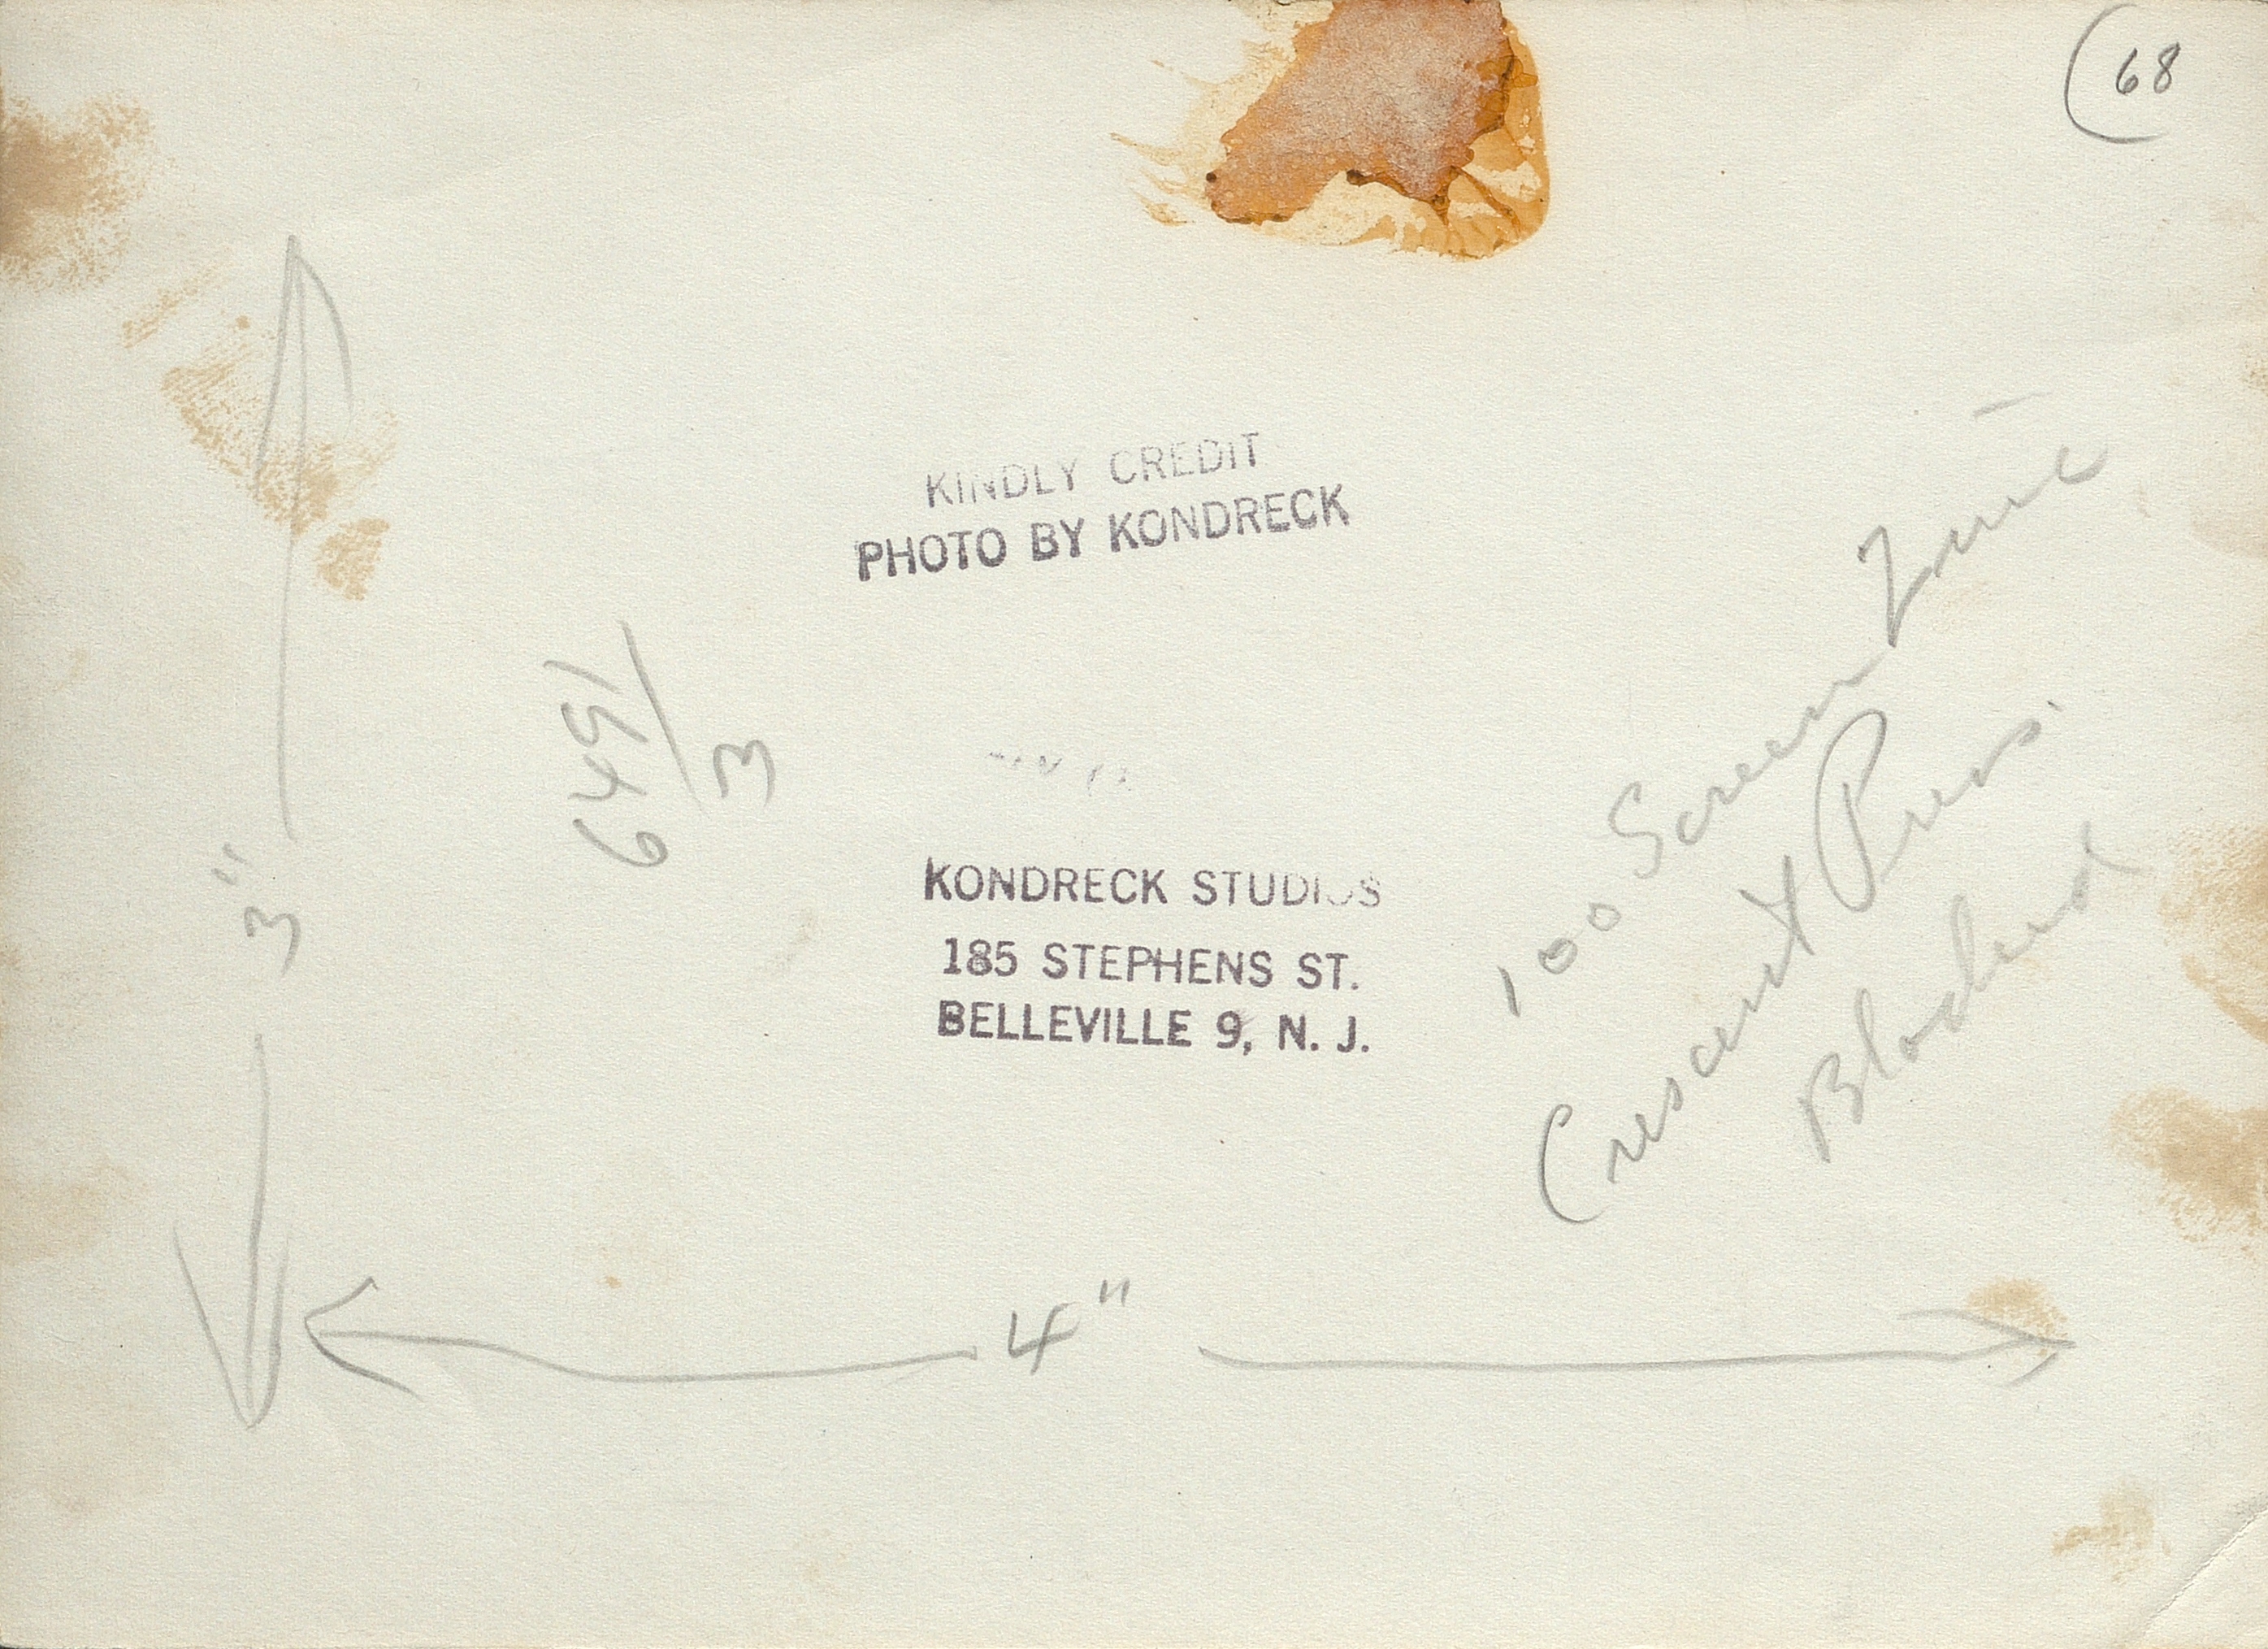 68
KINDLY CREDIT
PHOTO BY KONDRECK
6491/3
3"
KONDRECK STUDIOS
185 STEPHENS ST.
BELLEVILLE 9, N. J.
100 Screen Zinc
Crescent Press.
Blocked
4"